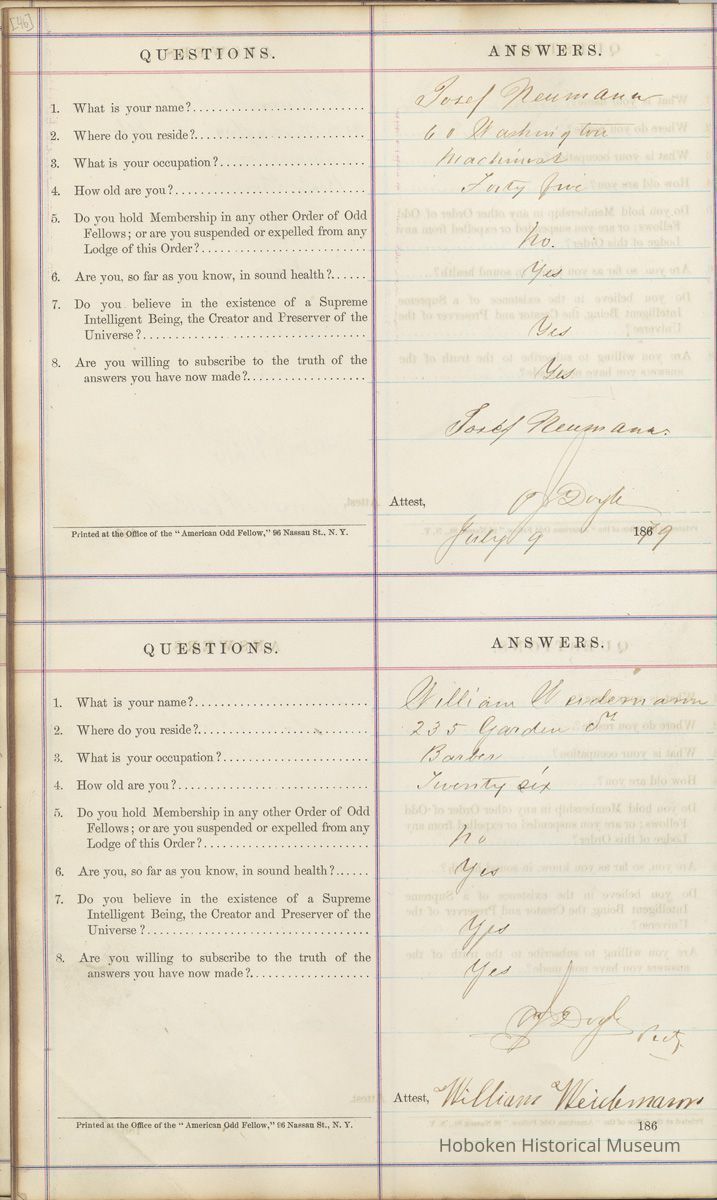 [46]
QUESTIONS.
ANSWERS.
1. What is your name?
Josef Neumann
2. Where do you reside?
60 Washington
3. What is your occupation?
Machinist
4. How old are you?
Forty five
5. Do you hold Membership in any other Order of Odd
Fellows; or are you suspended or expelled from any
Lodge of this Order?
No.
6. Are you, so far as you know, in sound health?
Yes
7. Do you believe in the existence of a Supreme
Intelligent Being, the Creator and Preserver of the
Universe?
Yes
8. Are you willing to subscribe to the truth of the
answers you have now made?
Yes
Josef Neumann.
Attest, Doyle
Printed at the Office of the "American Odd Fellow," 96 Nassau St., N. Y.
July 9 186 79
QUESTIONS.
ANSWERS.
1. What is your name?
William Weidemann
2. Where do you reside?
235 Garden St
3. What is your occupation?
Barber
4. How old are you?
Twenty six
5. Do you hold Membership in any other Order of Odd
Fellows; or are you suspended or expelled from any
Lodge of this Order?
No
6. Are you, so far as you know, in sound health?
Yes
7. Do you believe in the existence of a Supreme
Intelligent Being, the Creator and Preserver of the
Universe?
Yes
8. Are you willing to subscribe to the truth of the
answers you have now made?
Yes
Doyle
Attest, William Weidemann
Printed at the Office of the "American Odd Fellow," 96 Nassau St., N. Y.
186
Hoboken Historical Museum